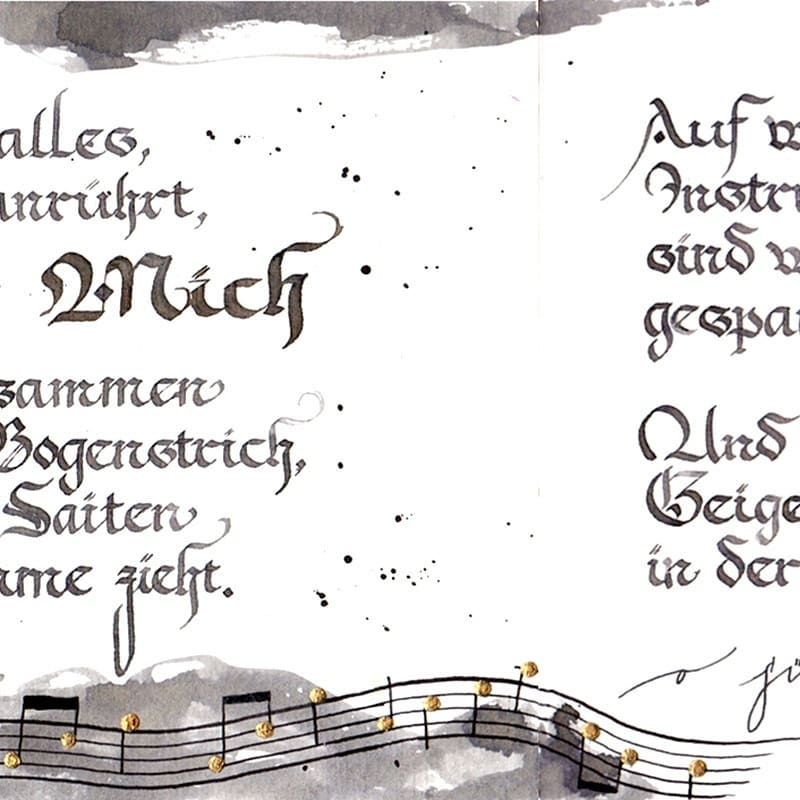 alles,
anrührt,
Mich
sammen
Bogenstrich,
Saiten
me zieht.
Auf w
Instru
sind w
gespan
Und
Geige
in der